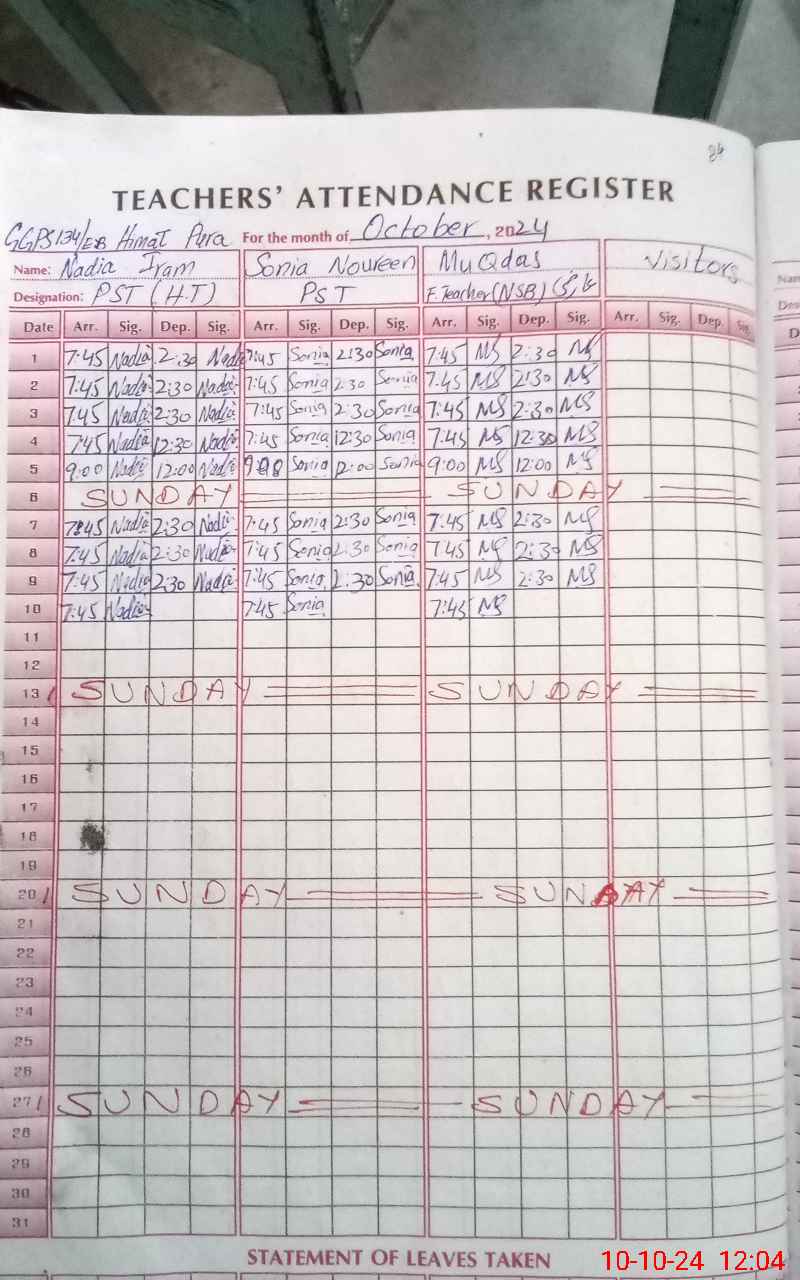 86
TEACHERS' ATTENDANCE REGISTER
GGPS 134/EB Himat Pura For the month of October, 2024
Name: Nadia Iram Sonia Noureen MuQdas Visitors
Designation: PST (H.T) PST F.Teacher (NSB)
Date Arr. Sig. Dep. Sig. Arr. Sig. Dep. Sig. Arr. Sig. Dep. Sig. Arr. Sig. Dep. Sig.
1 7:45 Nadia 2:30 Nadia 7:45 Sonia 2:30 Sonia 7:45 MS 2:30 MS
2 7:45 Nadia 2:30 Nadia 7:45 Sonia 2:30 Sonia 7:45 MS 2:30 MS
3 7:45 Nadia 2:30 Nadia 7:45 Sonia 2:30 Sonia 7:45 MS 2:30 MS
4 7:45 Nadia 12:30 Nadia 7:45 Sonia 12:30 Sonia 7:45 MS 12:30 MS
5 9:00 Nadia 12:00 Nadia Sonia 12:00 Sonia 9:00 MS 12:00 MS
6 SUNDAY SUNDAY
7 7:45 Nadia 2:30 Nadia 7:45 Sonia 2:30 Sonia 7:45 MS 2:30 MS
8 7:45 Nadia 2:30 Nadia 7:45 Sonia 2:30 Sonia 7:45 MS 2:30 MS
9 7:45 Nadia 2:30 Nadia 7:45 Sonia 2:30 Sonia 7:45 MS 2:30 MS
10 7:45 Nadia 7:45 Sonia 7:45 MS
11
12
13 SUNDAY SUNDAY
14
15
16
17
18
19
20 SUNDAY SUNDAY
21
22
23
24
25
26
27 SUNDAY SUNDAY
28
29
30
31
STATEMENT OF LEAVES TAKEN
10-10-24 12:04